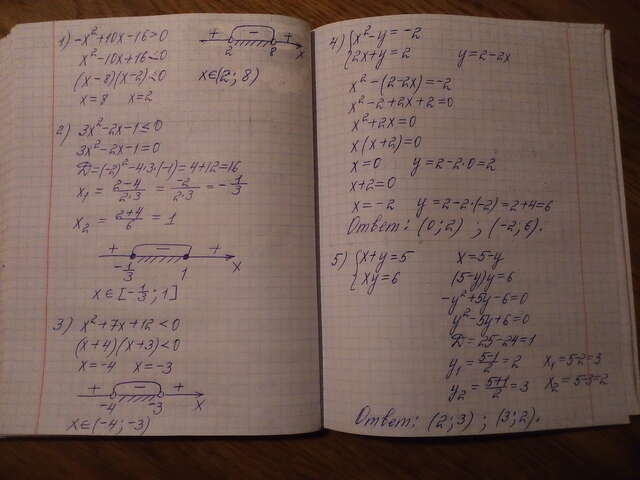 1) -x²+10x-16>0
x²-10x+16<0
(x-8)(x-2)<0
x=8 x=2
+ - +
2 8 x
x∈(2; 8)
2) 3x²-2x-1≤0
3x²-2x-1=0
D=(-2)²-4·3·(-1)=4+12=16
x₁ = (2-4)/(2·3) = (-2)/(2·3) = -1/3
x₂ = (2+4)/6 = 1
+ - +
-1/3 1 x
x∈[-1/3; 1]
3) x²+7x+12<0
(x+4)(x+3)<0
x=-4 x=-3
+ - +
-4 -3 x
x∈(-4; -3)
4) {x²-y=-2
{2x+y=2 y=2-2x
x²-(2-2x)=-2
x²-2+2x+2=0
x²+2x=0
x(x+2)=0
x=0 y=2-2·0=2
x+2=0
x=-2 y=2-2·(-2)=2+4=6
Ответ: (0; 2) ; (-2; 6).
5) {x+y=5 x=5-y
{xy=6 (5-y)y=6
-y²+5y-6=0
y²-5y+6=0
D=25-24=1
y₁=(5-1)/2=2 x₁=5-2=3
y₂=(5+1)/2=3 x₂=5-3=2
Ответ: (2; 3) ; (3; 2).